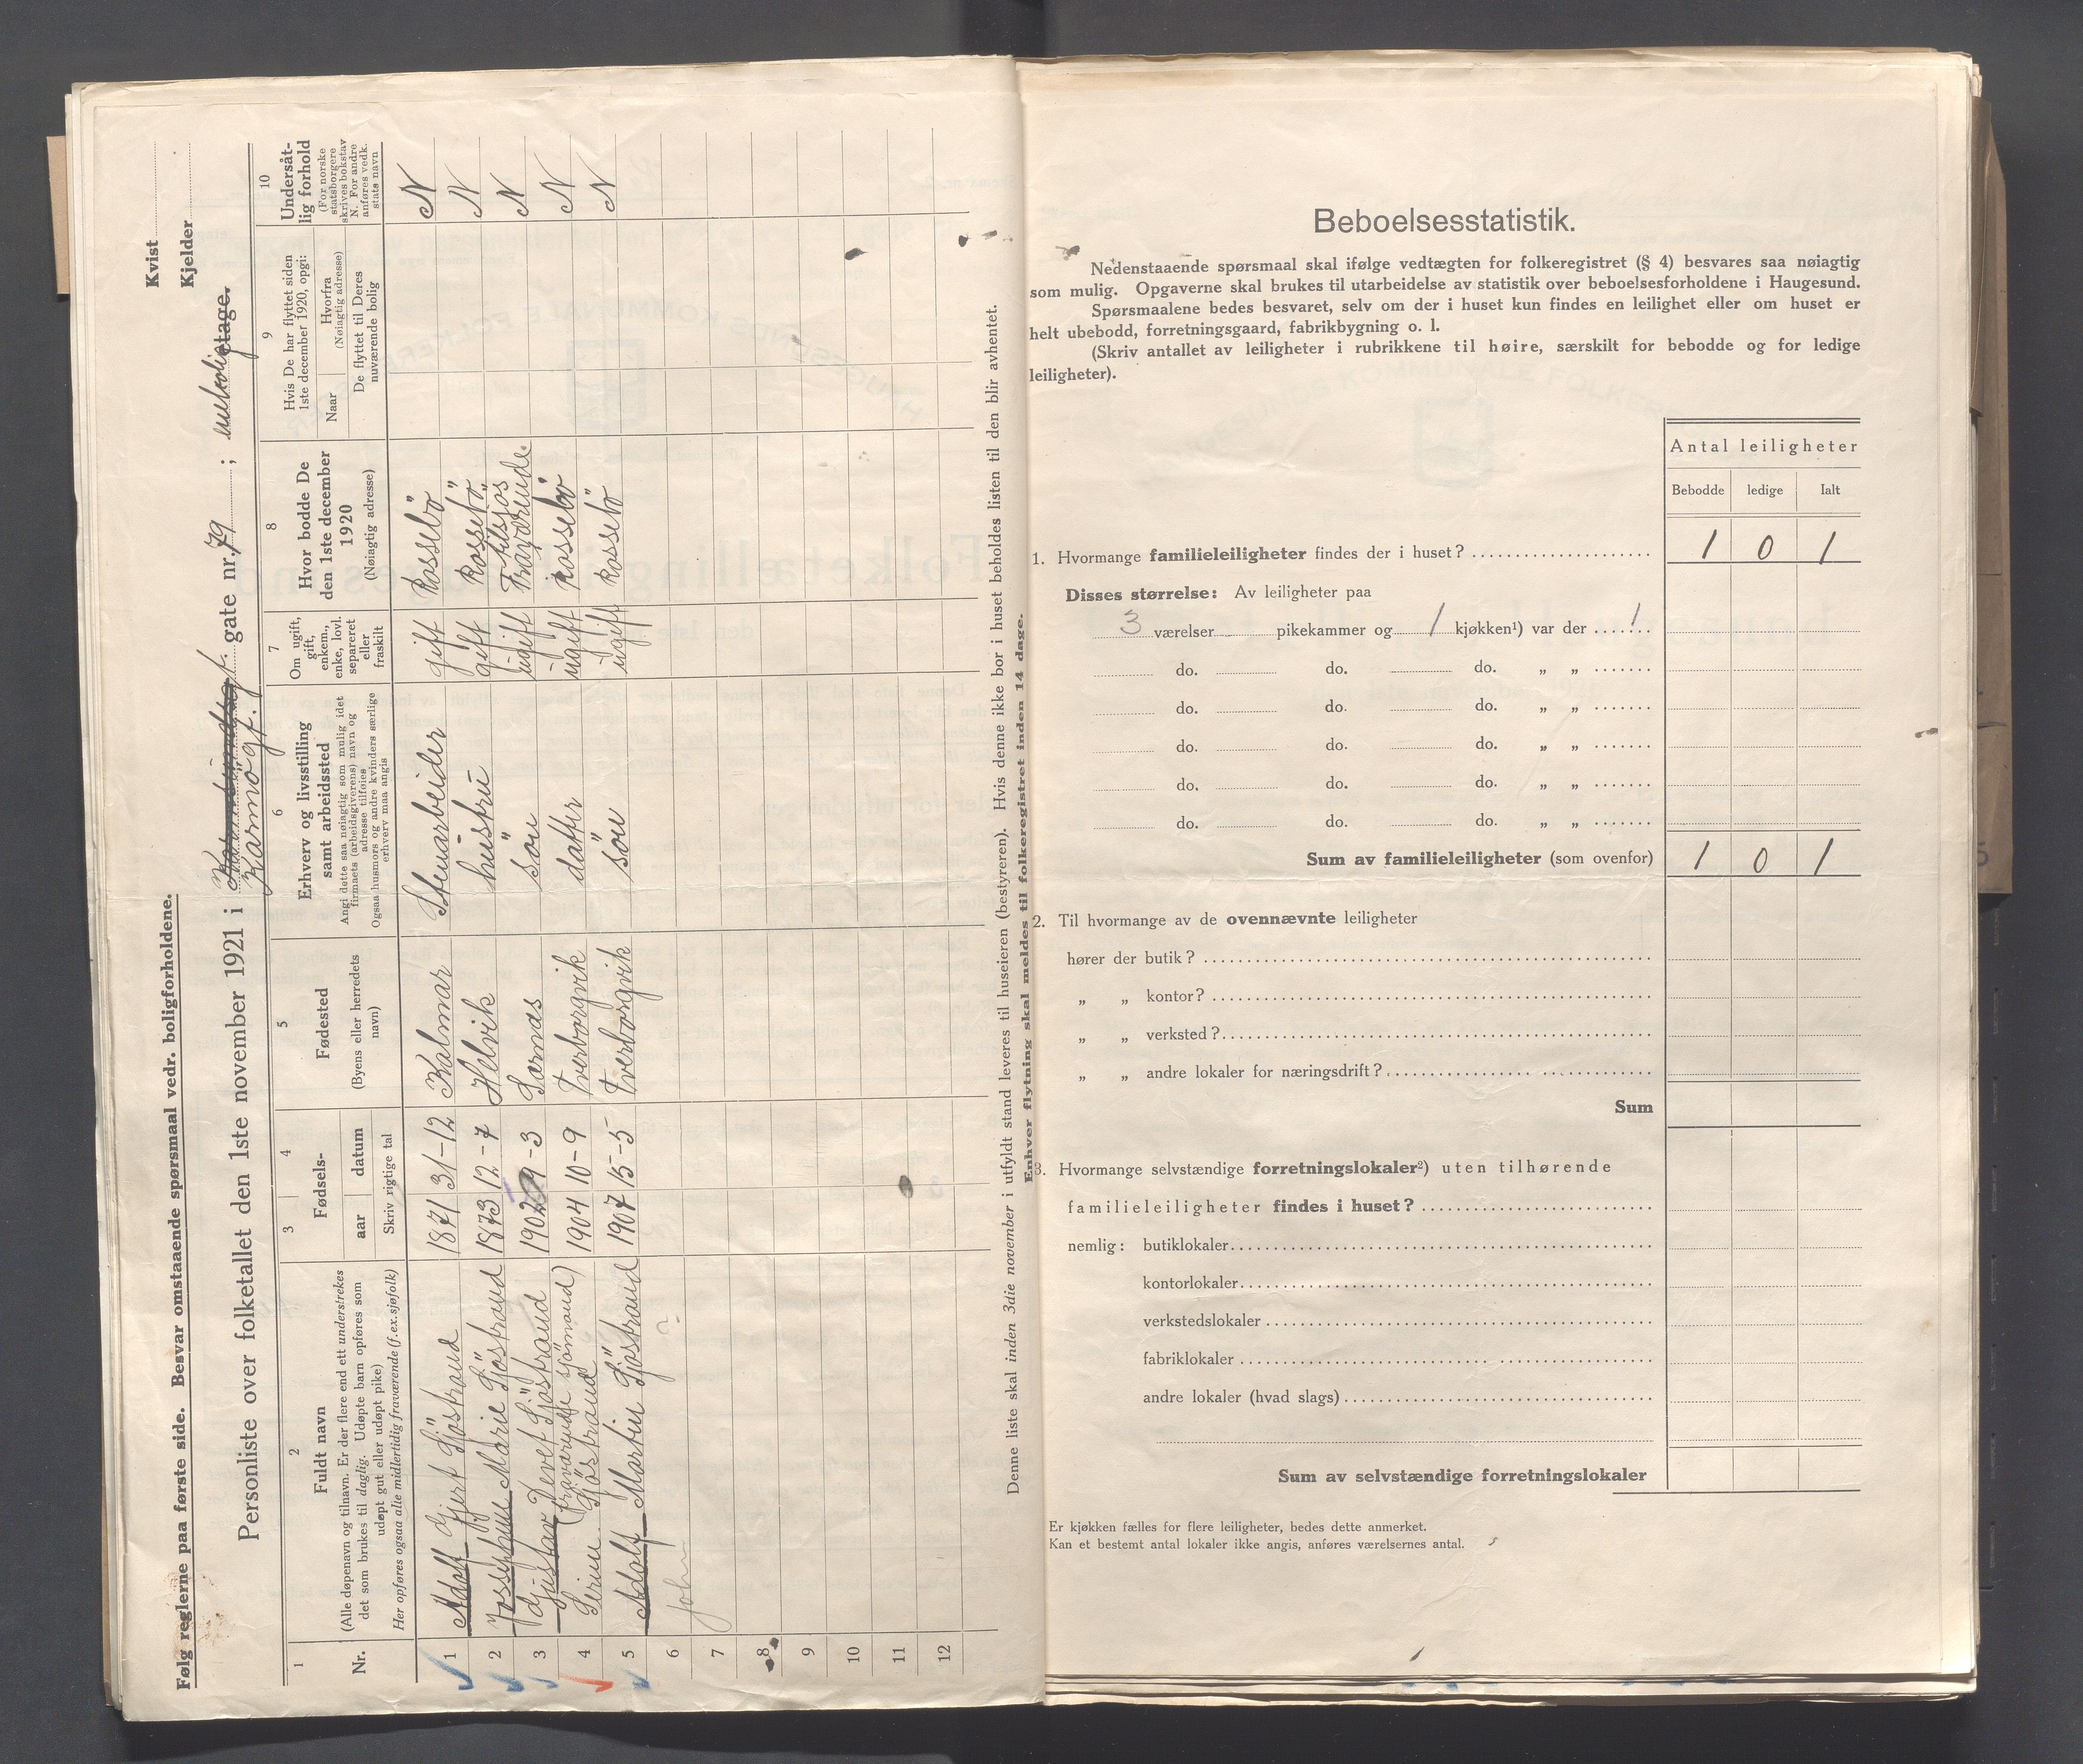 Følg reglerne paa første side. Besvar omstaaende spørsmaal vedr. boligforholdene.
Kvist
Kjelder
Personliste over folketallet den 1ste november 1921 i Karmögt. gate nr. 79 ; etage.
1 2 3 4 5 6 7 8 9 10
Nr.
Fuldt navn
(Alle døpenavn og tilnavn. Er der flere end ett understrekes
det som brukes til daglig. Udøpte barn opføres som
udøpt gut eller udøpt pike)
Her opføres ogsaa alle midlertidig fraværende (f.ex. sjøfolk)
Fødsels-
aar datum
Skriv rigtige tal
Fødested
(Byens eller herredets
navn)
Erhverv og livsstilling
samt arbeidssted
Angi dette saa nøiagtig som mulig idet
firmaets (arbeidsgiverens) navn og
adresse tilføies
Ogsaa husmors og andre kvinders særlige
erhverv maa angis
Om ugift,
gift,
enkem.,
enke, lovl.
separeret
eller
fraskilt
Hvor bodde De
den 1ste december
1920
(Nøiagtig adresse)
Hvis De har flyttet siden
1ste december 1920, opgi:
Naar
Hvorfra
(Nøiagtig adresse)
De flyttet til Deres
nuværende bolig
Undersåt-
lig forhold
(For norske
statsborgere
skrives bokstav
N. For andre
anføres vedk.
stats navn
1 Adolf Gjert Sjöstrand 1871 31-12 Kalmar Stenarbeider gift Rossebö N
2 Josephine Marie Sjöstrand 1873 12-7 Helvik hustru gift Rossebö N
3 Gustav Devet Sjöstrand 1902 9-3 Sarnas sön ugift Tilsjös N
(fraværende sjömand) Fraværende
4 Sirine Sjöstrand 1904 10-9 Tverborgvik datter ugift Rossebö N
5 Adolf Martin Sjöstrand 1907 15-5 Tverborgvik sön ugift Rossebö N
6 John ?
7
8
9
10
11
12
Denne liste skal inden 3die november i utfyldt stand leveres til huseieren (bestyreren). Hvis denne ikke bor i huset beholdes listen til den blir avhentet.
Enhver flytning skal meldes til folkeregistret inden 14 dage.
Beboelsesstatistik.
Nedenstaaende spørsmaal skal ifølge vedtægten for folkeregistret (§ 4) besvares saa nøiagtig
som mulig. Opgaverne skal brukes til utarbeidelse av statistik over beboelsesforholdene i Haugesund.
Spørsmaalene bedes besvaret, selv om der i huset kun findes en leilighet eller om huset er
helt ubebodd, forretningsgaard, fabrikbygning o. l.
(Skriv antallet av leiligheter i rubrikkene til høire, særskilt for bebodde og for ledige
leiligheter).
Antal leiligheter
Bebodde ledige Ialt
1. Hvormange familieleiligheter findes der i huset? 1 0 1
Disses størrelse: Av leiligheter paa
3 værelser pikekammer og 1 kjøkken¹) var der 1
do. do. do. „ „
do. do. do. „ „
do. do. do. „ „
do. do. do. „ „
do. do. do. „ „
Sum av familieleiligheter (som ovenfor) 1 0 1
2. Til hvormange av de ovennævnte leiligheter
hører der butik?
„ „ kontor?
„ „ verksted?
„ „ andre lokaler for næringsdrift?
Sum
3. Hvormange selvstændige forretningslokaler²) uten tilhørende
familieleiligheter findes i huset?
nemlig: butiklokaler
kontorlokaler
verkstedslokaler
fabriklokaler
andre lokaler (hvad slags)
Sum av selvstændige forretningslokaler
Er kjøkken fælles for flere leiligheter, bedes dette anmerket.
Kan et bestemt antal lokaler ikke angis, anføres værelsernes antal.